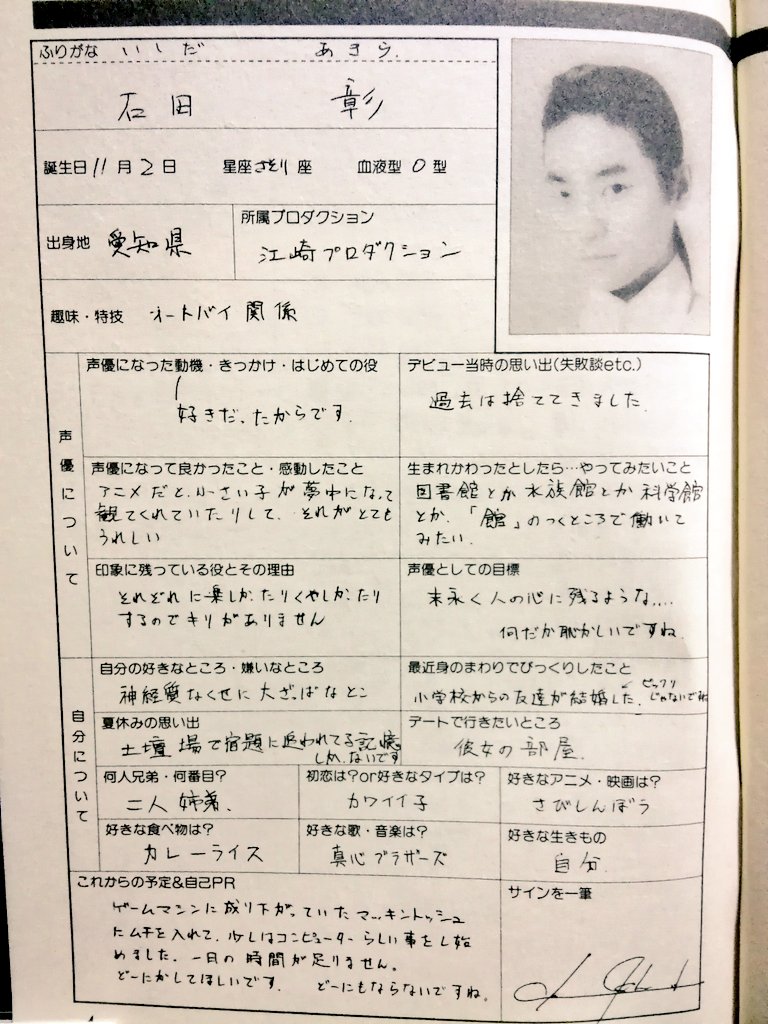 ふりがな いしだ あきら
石田 彰
誕生日 11月2日 星座 さそり座 血液型 O型
出身地 愛知県
所属プロダクション
江崎プロダクション
趣味・特技 オートバイ関係
声優について
声優になった動機・きっかけ・はじめての役
好きだったからです。
デビュー当時の思い出(失敗談etc.)
過去は捨ててきました。
声優になって良かったこと・感動したこと
アニメだと、小さい子が夢中になって
観てくれていたりして、それがとても
うれしい
生まれかわったとしたら…やってみたいこと
図書館とか水族館とか科学館
とか、「館」のつくところで働いて
みたい。
印象に残っている役とその理由
それぞれに楽しかったりくやしかったり
するのでキリがありません
声優としての目標
末永く人の心に残るような....
何だか恥かしいですね。
自分について
自分の好きなところ・嫌いなところ
神経質なくせに大ざっぱなとこ
最近身のまわりでびっくりしたこと
小学校からの友達が結婚した。
ビックリ
じゃないですね
夏休みの思い出
土壇場で宿題に追われてる記憶
しかないです
デートで行きたいところ
彼女の部屋。
何人兄弟・何番目?
二人姉弟。
初恋は?or好きなタイプは?
カワイイ子
好きなアニメ・映画は?
さびしんぼう
好きな食べ物は?
カレーライス
好きな歌・音楽は?
真心ブラザーズ
好きな生きもの
自分。
これからの予定&自己PR
ゲームマシンに成り下がっていたマッキントッシュ
にムチを入れて、少しはコンピューターらしい事をし始
めました。一日の時間が足りません。
どーにかしてほしいです。 どーにもならないですね。
サインを一筆